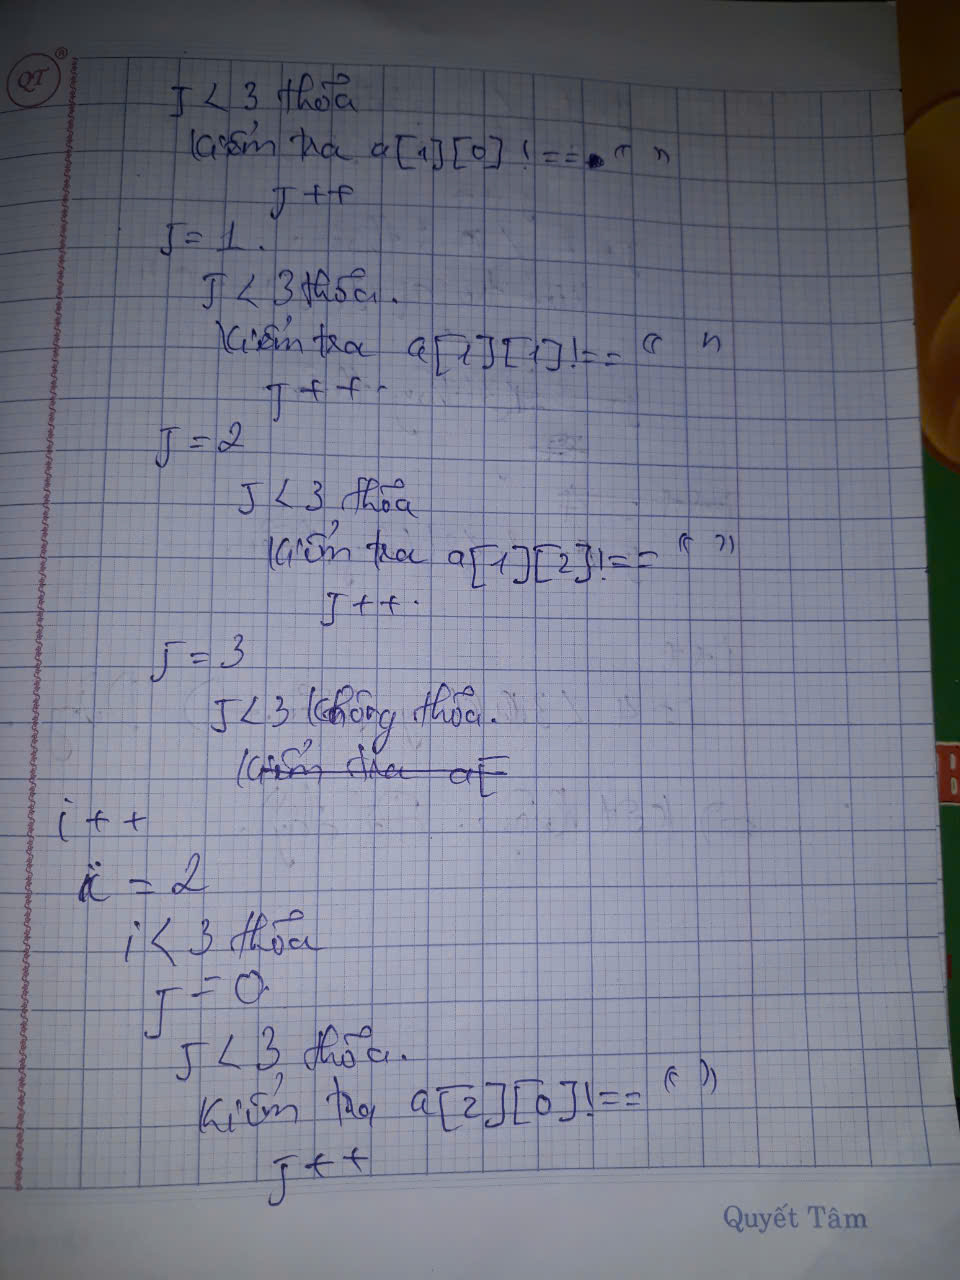 QT ®
J < 3 thỏa
Kiểm tra a[1][0] !== “ ”
J++
J = 1.
J < 3 thỏa.
Kiểm tra a[1][1] !== “ ”
J++.
J = 2
J < 3 thỏa
Kiểm tra a[1][2] !== “ ”
J++.
J = 3
J < 3 không thỏa.
Kiểm tra a[
i++
i = 2
i < 3 thỏa
J = 0
J < 3 thỏa.
Kiểm tra a[2][0] !== “ ”
J++
Quyết Tâm